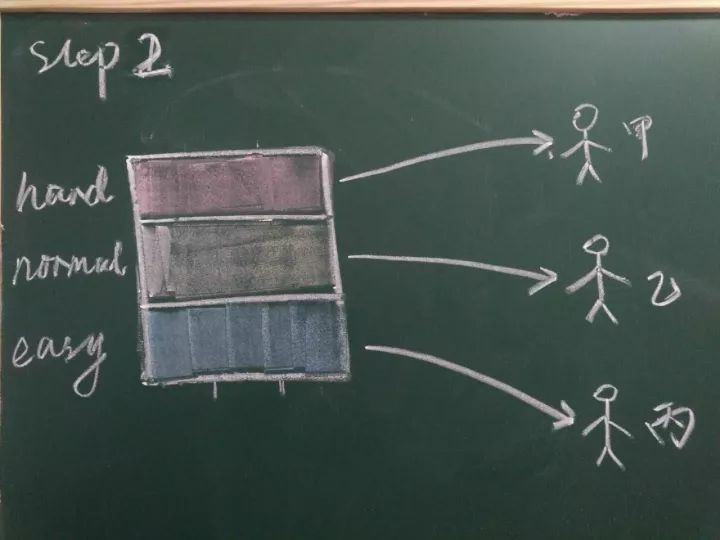 step 2
hard
甲
normal
乙
easy
丙